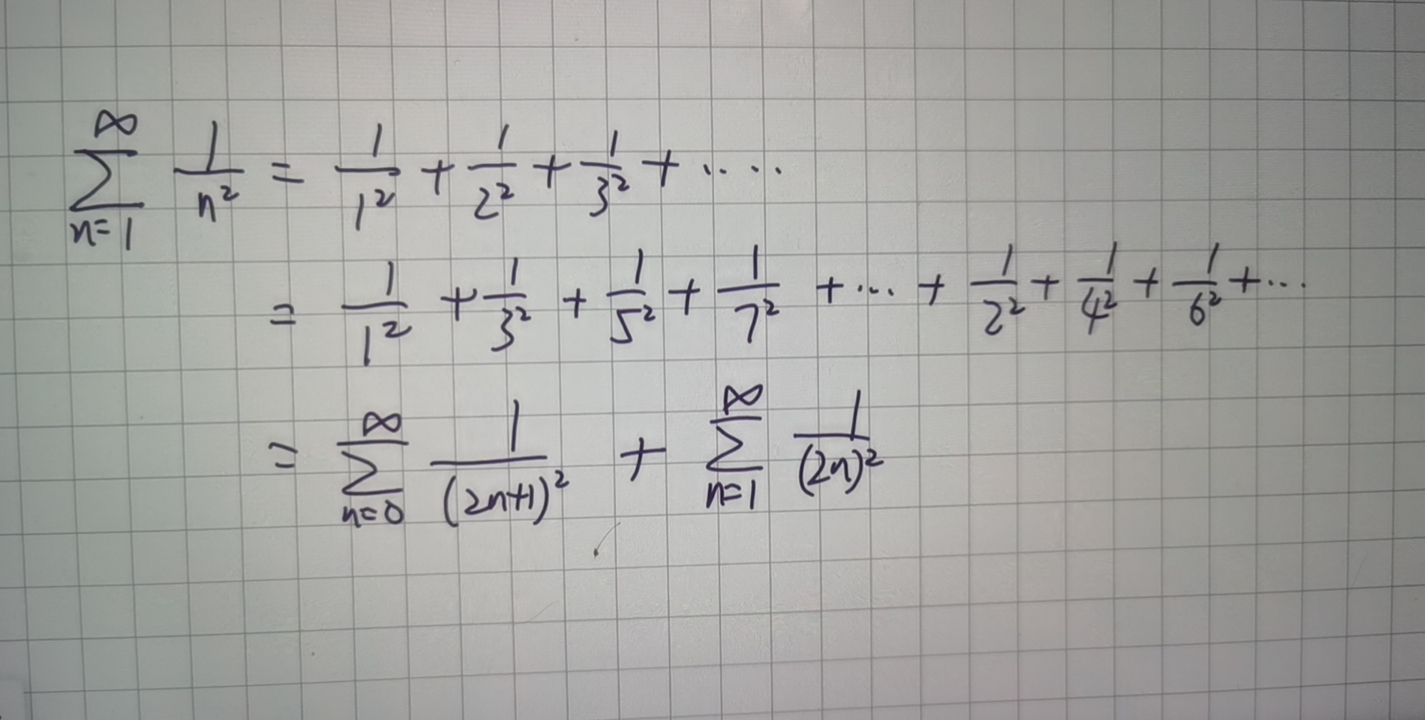 \sum_{n=1}^{\infty} \frac{1}{n^2} = \frac{1}{1^2} + \frac{1}{2^2} + \frac{1}{3^2} + \cdots\cdot
= \frac{1}{1^2} + \frac{1}{3^2} + \frac{1}{5^2} + \frac{1}{7^2} + \cdots + \frac{1}{2^2} + \frac{1}{4^2} + \frac{1}{6^2} + \cdots
= \sum_{n=0}^{\infty} \frac{1}{(2n+1)^2} + \sum_{n=1}^{\infty} \frac{1}{(2n)^2}